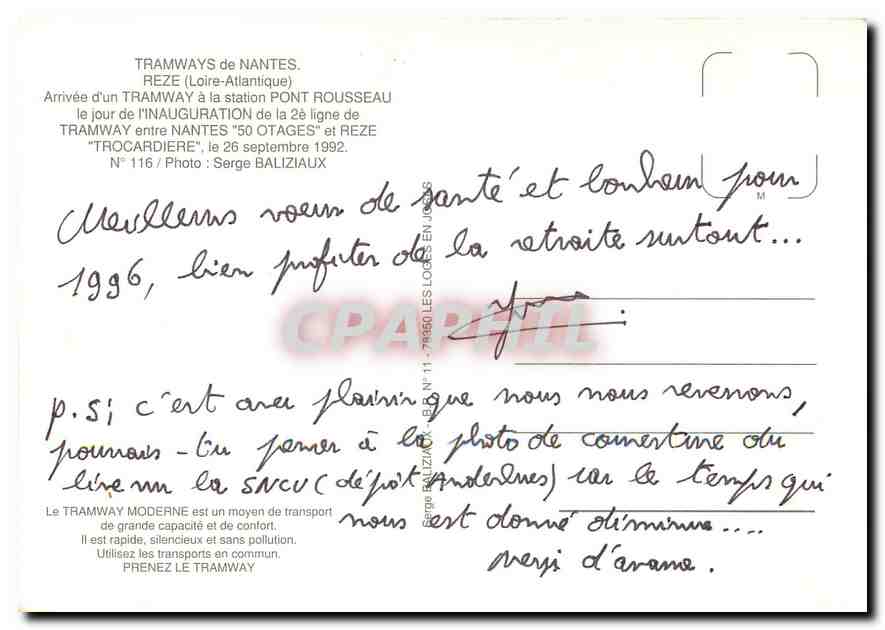 TRAMWAYS de NANTES.
REZE (Loire-Atlantique)
Arrivée d'un TRAMWAY à la station PONT ROUSSEAU
le jour de l'INAUGURATION de la 2è ligne de
TRAMWAY entre NANTES "50 OTAGES" et REZE
"TROCARDIERE", le 26 septembre 1992.
N° 116 / Photo : Serge BALIZIAUX
M
Meilleurs voeux de santé et bonheur pour
1996, bien profiter de la retraite surtout...
CPAPHIL
Serge BALIZIAUX - B.P. N° 11 - 78350 LES LOGES EN JOSAS
p.s; c'est avec plaisir que nous nous reverrons,
pourrais-tu penser à la photo de couverture du
livre sur la SNCV (dépôt Anderlues) car le temps qui
nous est donné diminue....
merci d'avance.
Le TRAMWAY MODERNE est un moyen de transport
de grande capacité et de confort.
Il est rapide, silencieux et sans pollution.
Utilisez les transports en commun.
PRENEZ LE TRAMWAY